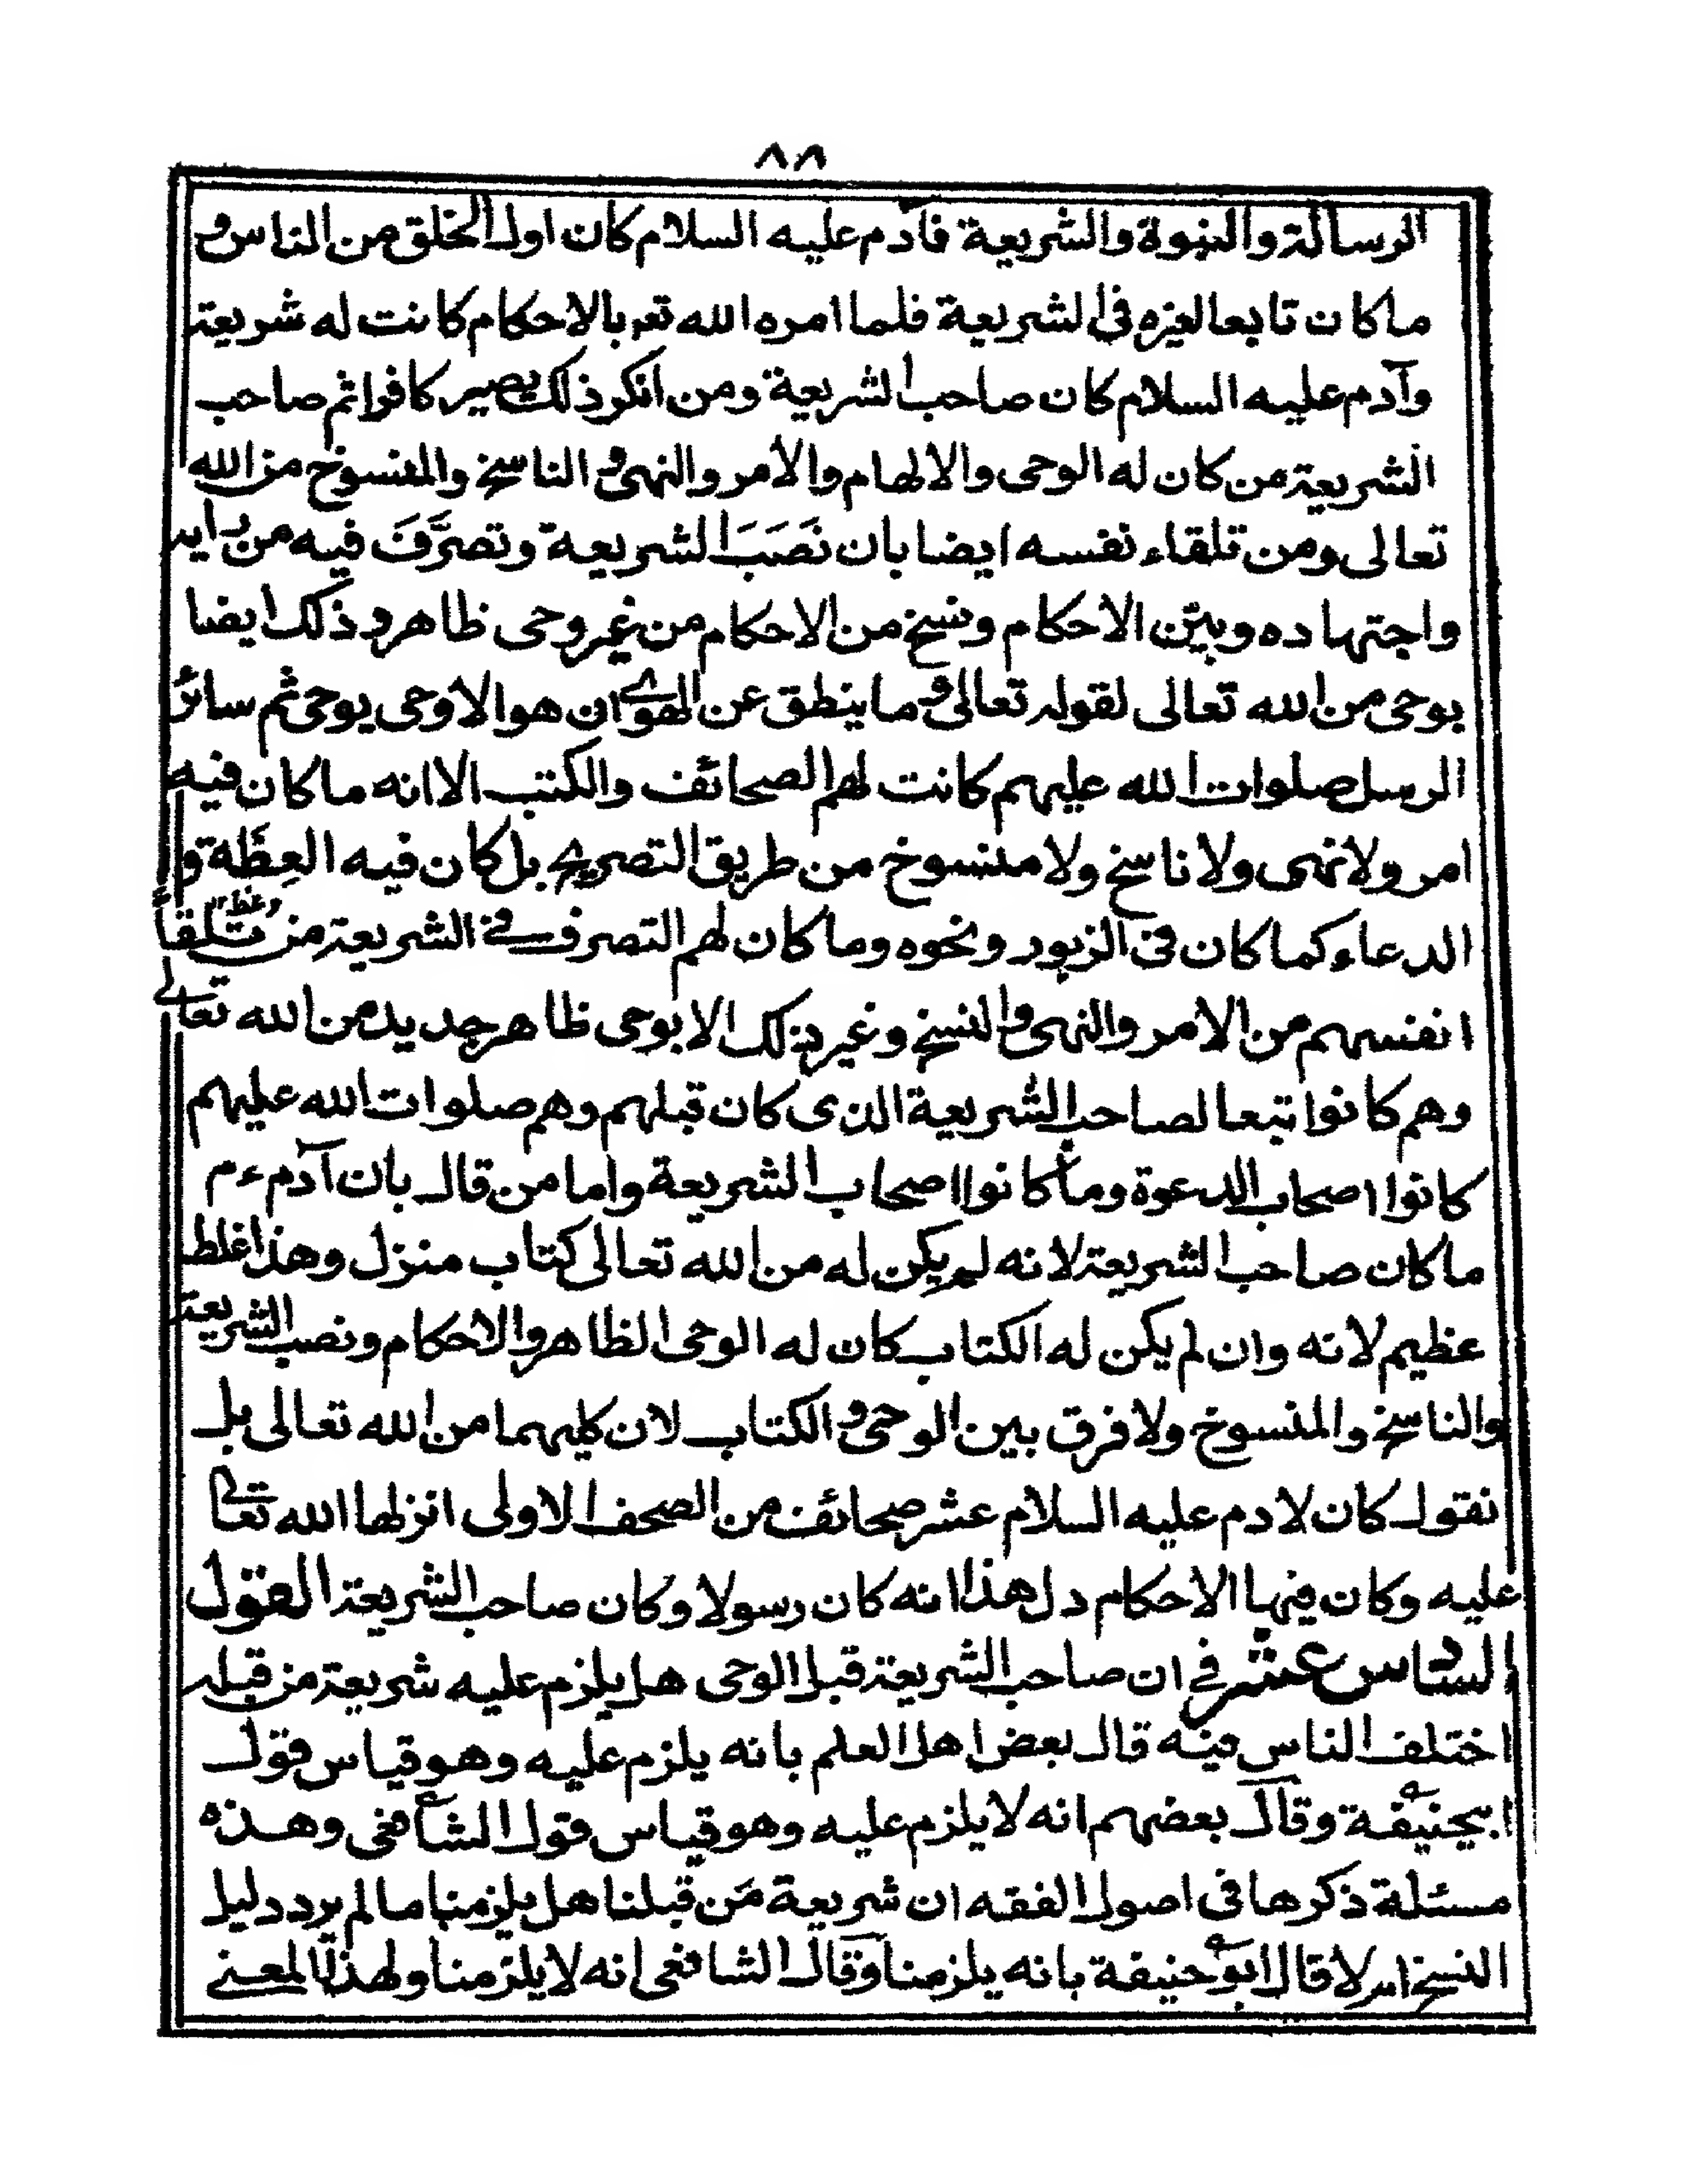 ٨٨
الرسالة والنبوة والشريعة فآدم عليه السلام كان اول الخلق من الناس و
ما كان تابعا لغيره فى الشريعة فلما امره الله تعـ بالاحكام كانت له شريعة
وآدم عليه السلام كان صاحب الشريعة ومن انكر ذلك يصير كافرا ثم صاحب
الشريعة من كان له الوحى والالهام والامر والنهى و الناسخ والمنسوخ من الله
تعالى ومن تلقاء نفسه ايضا بان نَصَبَ الشريعة وتصرَّفَ فيه من رايه
واجتهاده وبيّن الاحكام ونسخ من الاحكام من غير وحى ظاهر و ذلك ايضا
بوحى من الله تعالى لقوله تعالى و ما ينطق عن الهوى ان هو الا وحى يوحى ثم سائر
الرسل صلوات الله عليهم كانت لهم الصحائف والكتب الا انه ما كان فيه
امر ولا نهى ولا ناسخ ولا منسوخ من طريق التصريح بل كان فيه العِظَة وا
الدعاء كما كان فى الزبور ونحوه وما كان لهم التصرف فى الشريعة من تلقأ
انفسهم من الامر والنهى والنسخ وغير ذلك الا بوحى ظاهر جديد من الله تعالى
وهم كانوا تبعا لصاحب الشريعة الذى كان قبلهم وهم صلوات الله عليهم
كانوا اصحاب الدعوة وما كانوا اصحاب الشريعة واما من قال بان آدم ءم
ما كان صاحب الشريعة لانه لم يكن له من الله تعالى كتاب منزل وهذا غلط
عظيم لانه وان لم يكن له الكتاب كان له الوحى الظاهر والاحكام ونصب الشريعة
والناسخ والمنسوخ ولا فرق بين الوحى و الكتاب لان كليهما من الله تعالى بل
نقول كان لادم عليه السلام عشر صحائف من الصحف الاولى انزلها الله تعالى
عليه وكان فيها الاحكام دل هذا انه كان رسولا وكان صاحب الشريعة القول
السادس عشر فى ان صاحب الشريعة قبل الوحى هل يلزم عليه شريعة من قبله
اختلف الناس فيه قال بعض اهل العلم بانه يلزم عليه وهو قياس قول
ابيحنيفة وقال بعضهم انه لا يلزم عليه وهو قياس قول الشافعى وهذه
مسئلة ذكرها فى اصول الفقه ان شريعة مَن قبلنا هل يلزمنا ما لم يرد دليل
النسخ ام لا قال ابو حنيفة بانه يلزمنا وقال الشافعى انه لا يلزمنا ولهذا المعنى